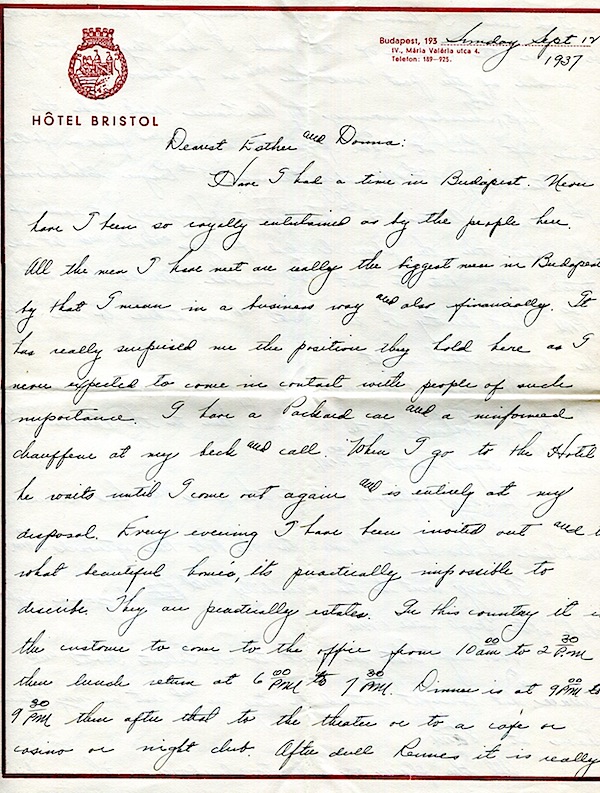 Budapest, 193 Sunday Sept 12
IV., Mária Valéria utca 4.
1937
Telefon: 189—925.
HÔTEL BRISTOL
Dearest Esther and Donna:
Have I had a time in Budapest. Never
have I been so royally entertained as by the people here.
All the men I have met are really the biggest men in Budapest
by that I mean in a business way and also financially. It
has really surprised me the position they hold here as I
never expected to come in contact with people of such
importance. I have a Packard car and a uniformed
chauffeur at my beck and call. When I go to the Hotel
he waits until I come out again and is entirely at my
disposal. Every evening I have been invited out and
what beautiful homes, its practically impossible to
describe. They are practically estates. In this country it
the custome to come to the office from 10 00 am to 2 30 P.M
then lunch return at 6 00 PM to 7 30 PM. Dinner is at 9 00 PM to
9 30 PM then after that to the theater or to a cafe or
casino or night club. After dull Rennes it is really